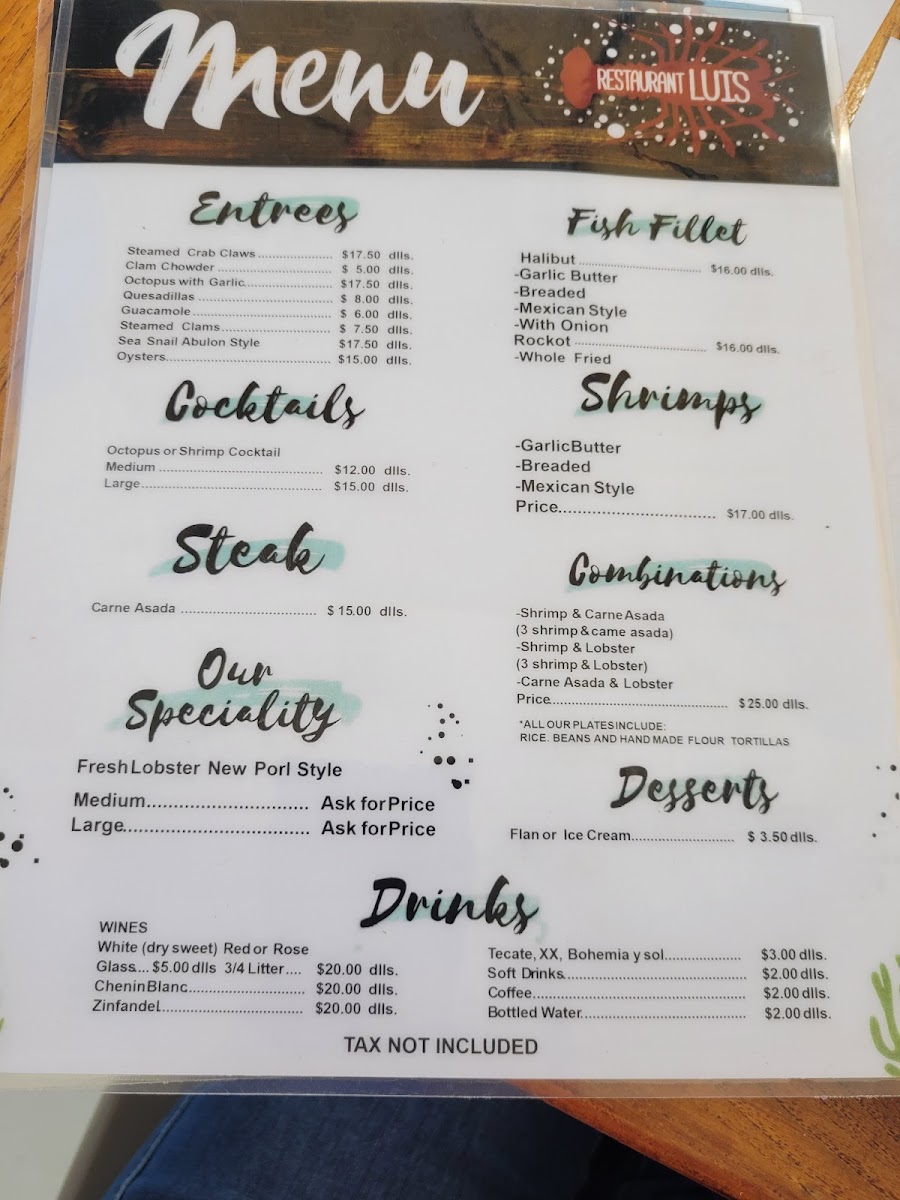 Menu
RESTAURANT LUIS
Entrees
Steamed Crab Claws.................. $17.50 dlls.
Clam Chowder ........................... $ 5.00 dlls.
Octopus with Garlic..................... $17.50 dlls.
Quesadillas ................................ $ 8.00 dlls.
Guacamole................................. $ 6.00 dlls.
Steamed Clams.......................... $ 7.50 dlls.
Sea Snail Abulon Style $17.50 dlls.
Oysters....................................... $15.00 dlls.
Cocktails
Octopus or Shrimp Cocktail
Medium ...................................... $12.00 dlls.
Large.......................................... $15.00 dlls.
Steak
Carne Asada ................................ $ 15.00 dlls.
Our
Speciality
Fresh Lobster New Porl Style
Medium............................. Ask for Price
Large................................. Ask for Price
Fish Fillet
Halibut ............................... $16.00 dlls.
-Garlic Butter
-Breaded
-Mexican Style
-With Onion
Rockot ................................ $16.00 dlls.
-Whole Fried
Shrimps
-Garlic Butter
-Breaded
-Mexican Style
Price................................. $17.00 dlls.
Combinations
-Shrimp & Carne Asada
(3 shrimp & came asada)
-Shrimp & Lobster
(3 shrimp & Lobster)
-Carne Asada & Lobster
Price.......................................... $ 25.00 dlls.
*ALL OUR PLATES INCLUDE:
RICE. BEANS AND HAND MADE FLOUR TORTILLAS
Desserts
Flan or Ice Cream........................ $ 3.50 dlls.
Drinks
WINES
White (dry sweet) Red or Rose
Glass.... $5.00 dlls 3/4 Litter.... $20.00 dlls.
Chenin Blanc........................... $20.00 dlls.
Zinfandel................................. $20.00 dlls.
Tecate, XX, Bohemia y sol.................. $3.00 dlls.
Soft Drinks.......................................... $2.00 dlls.
Coffee................................................. $2.00 dlls.
Bottled Water...................................... $2.00 dlls.
TAX NOT INCLUDED